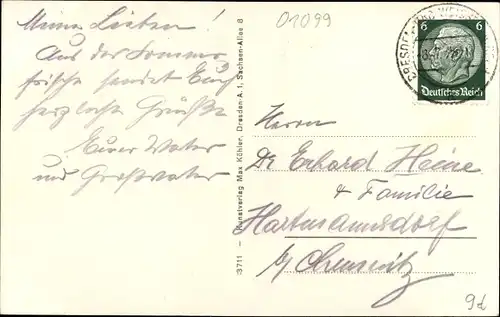 01099
Meine Lieben!
Aus der Sommer-
frische sendet Euch
herzlichste Grüße
Euer Vater
und Großvater
3711 - Kunstverlag Max Köhler, Dresden-A. 1, Sachsen-Allee 8
6 6
Deutsches Reich
DRESDEN
Herrn
Dr. Erhard Heine
& Familie
Hartmannsdorf
b/ Chemnitz